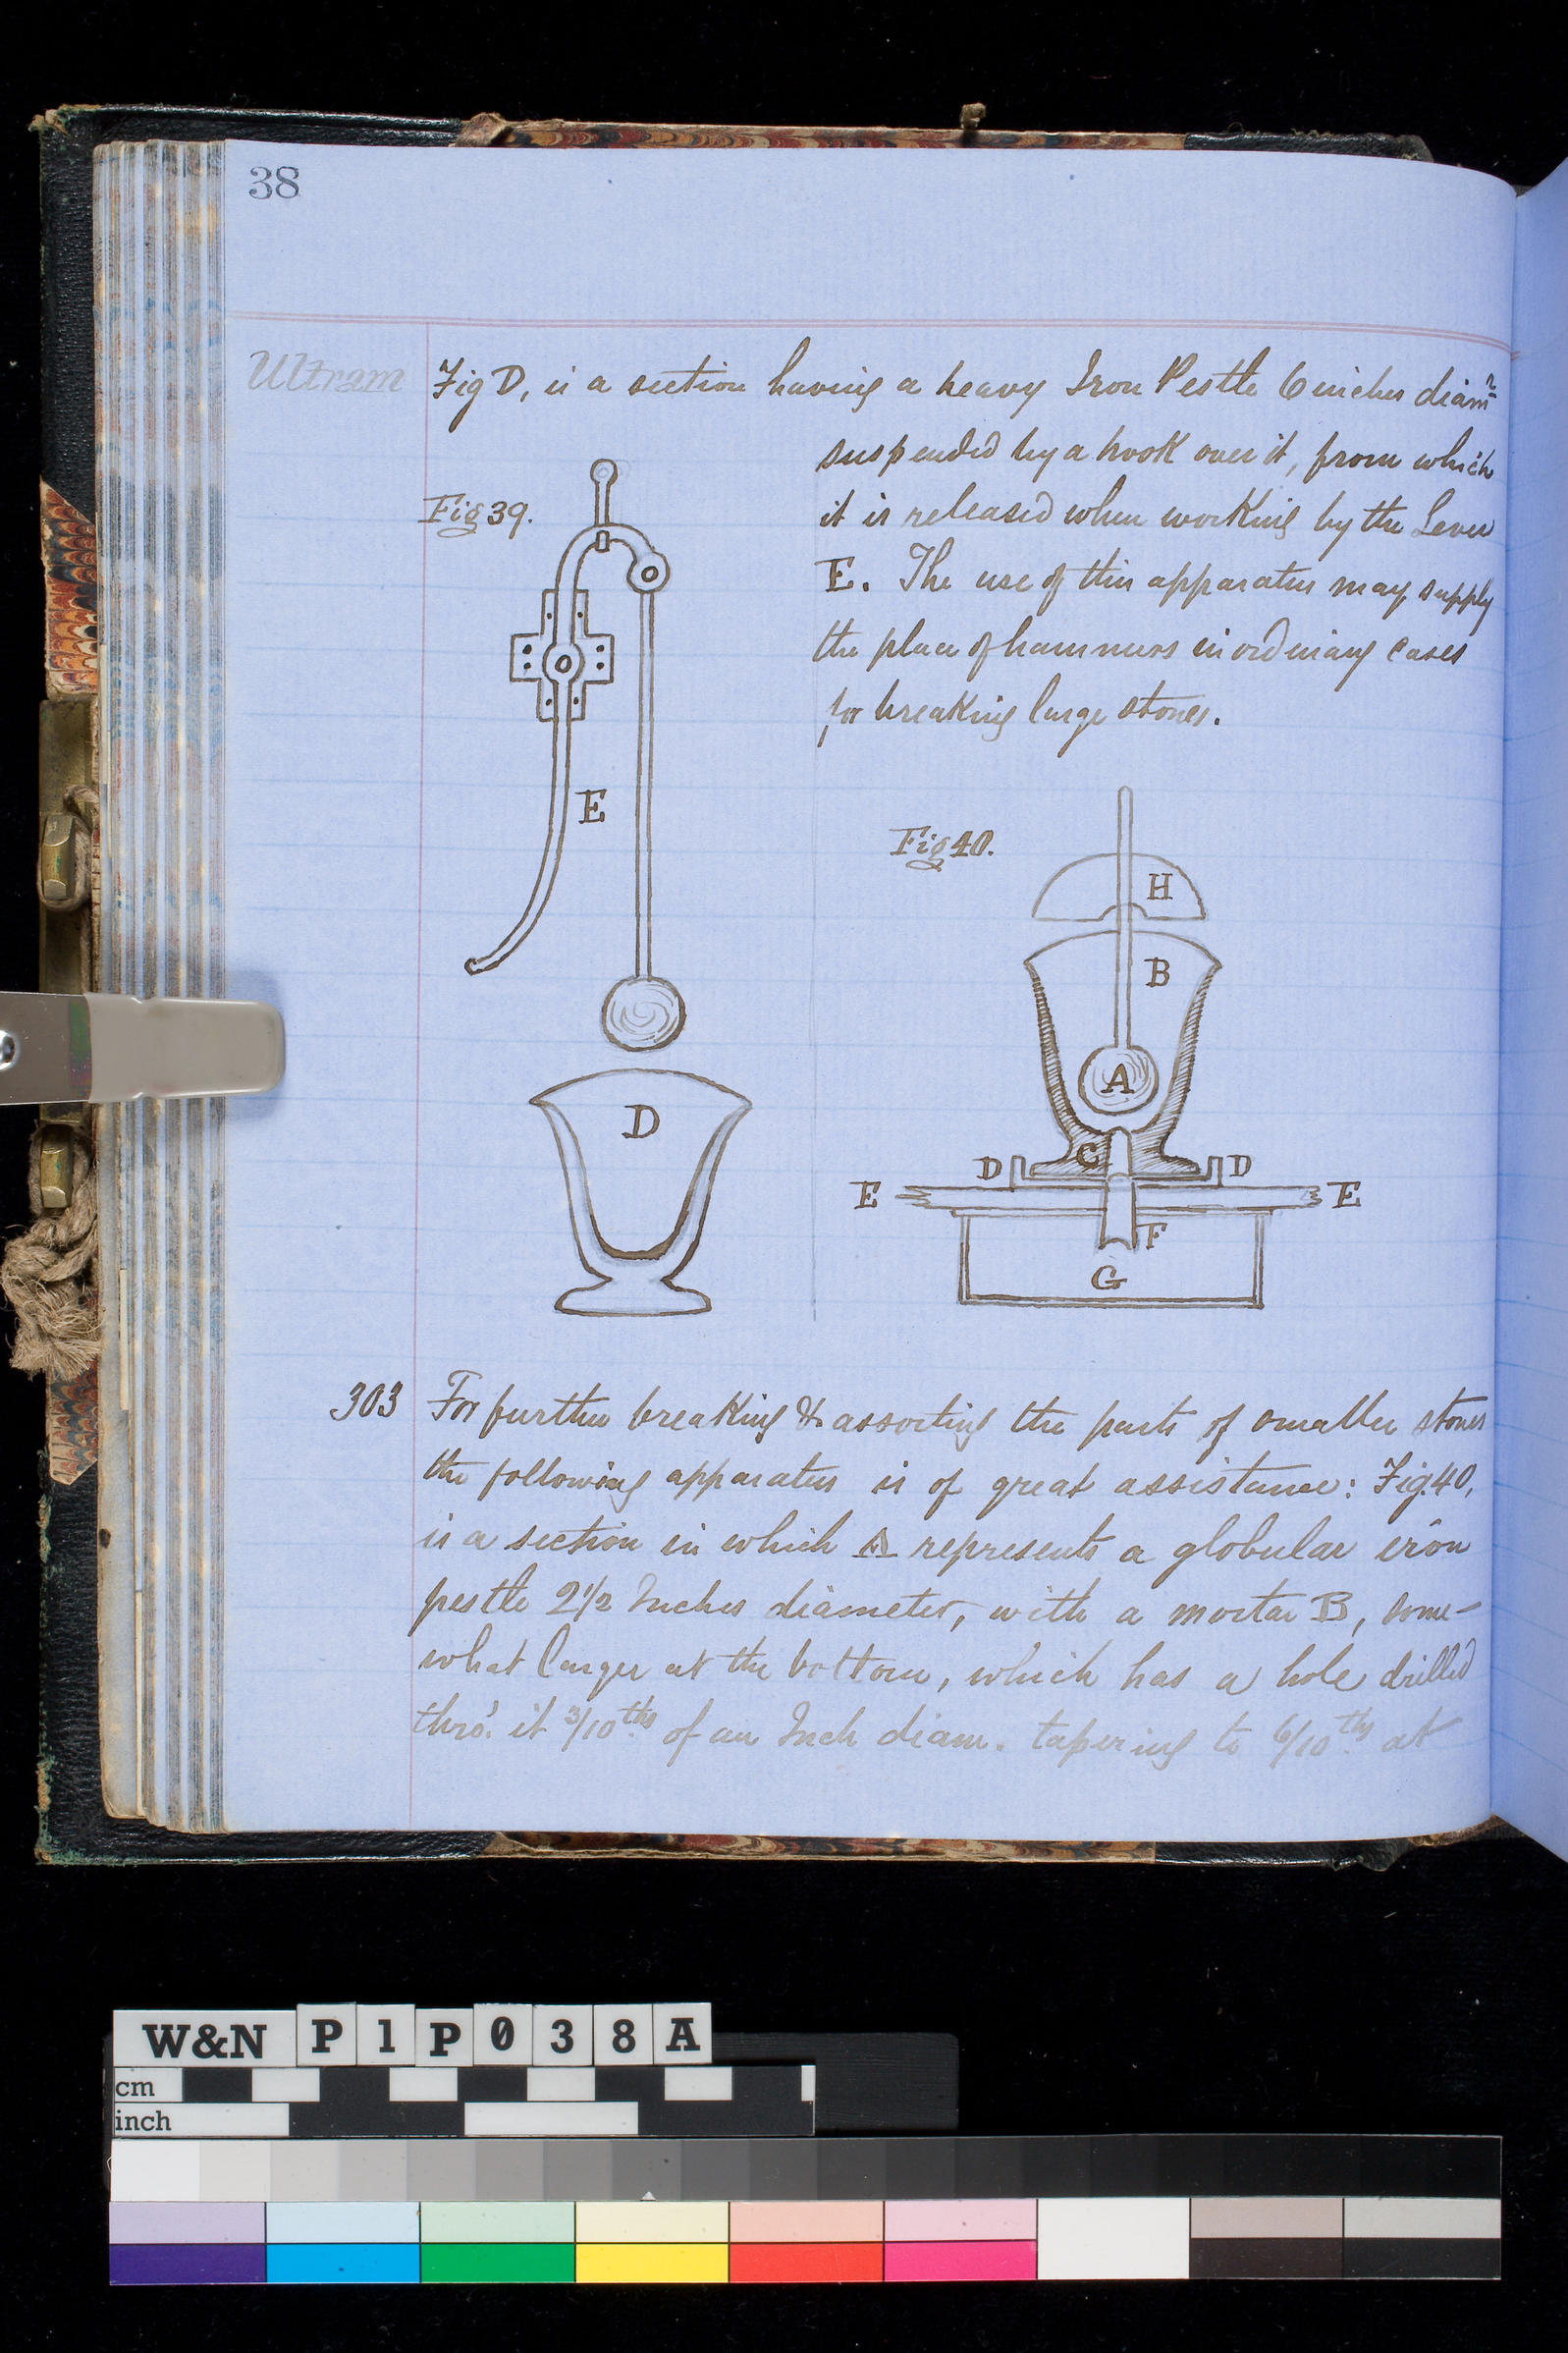 38
Ultram
Fig D, is a section having a heavy Iron Pestle 6 inches diamr
suspended by a hook over it, from which
it is released when working by the Lever
E. The use of this apparatus may supply
the place of hammers in ordinary cases
for breaking large stones.
Fig 39.
E
D
Fig 40.
H
B
A
C
D D
E E
F
G
303 For further breaking & assorting the parts of smaller stones
the following apparatus is of great assistance: Fig. 40,
is a section in which A represents a globular iron
pestle 2 1/2 Inches diameter, with a mortar B, some-
what larger at the bottom, which has a hole drilled
thro'. it 3/10ths of an Inch diam. tapering to 6/10ths at
W&N P1P038A
cm
inch